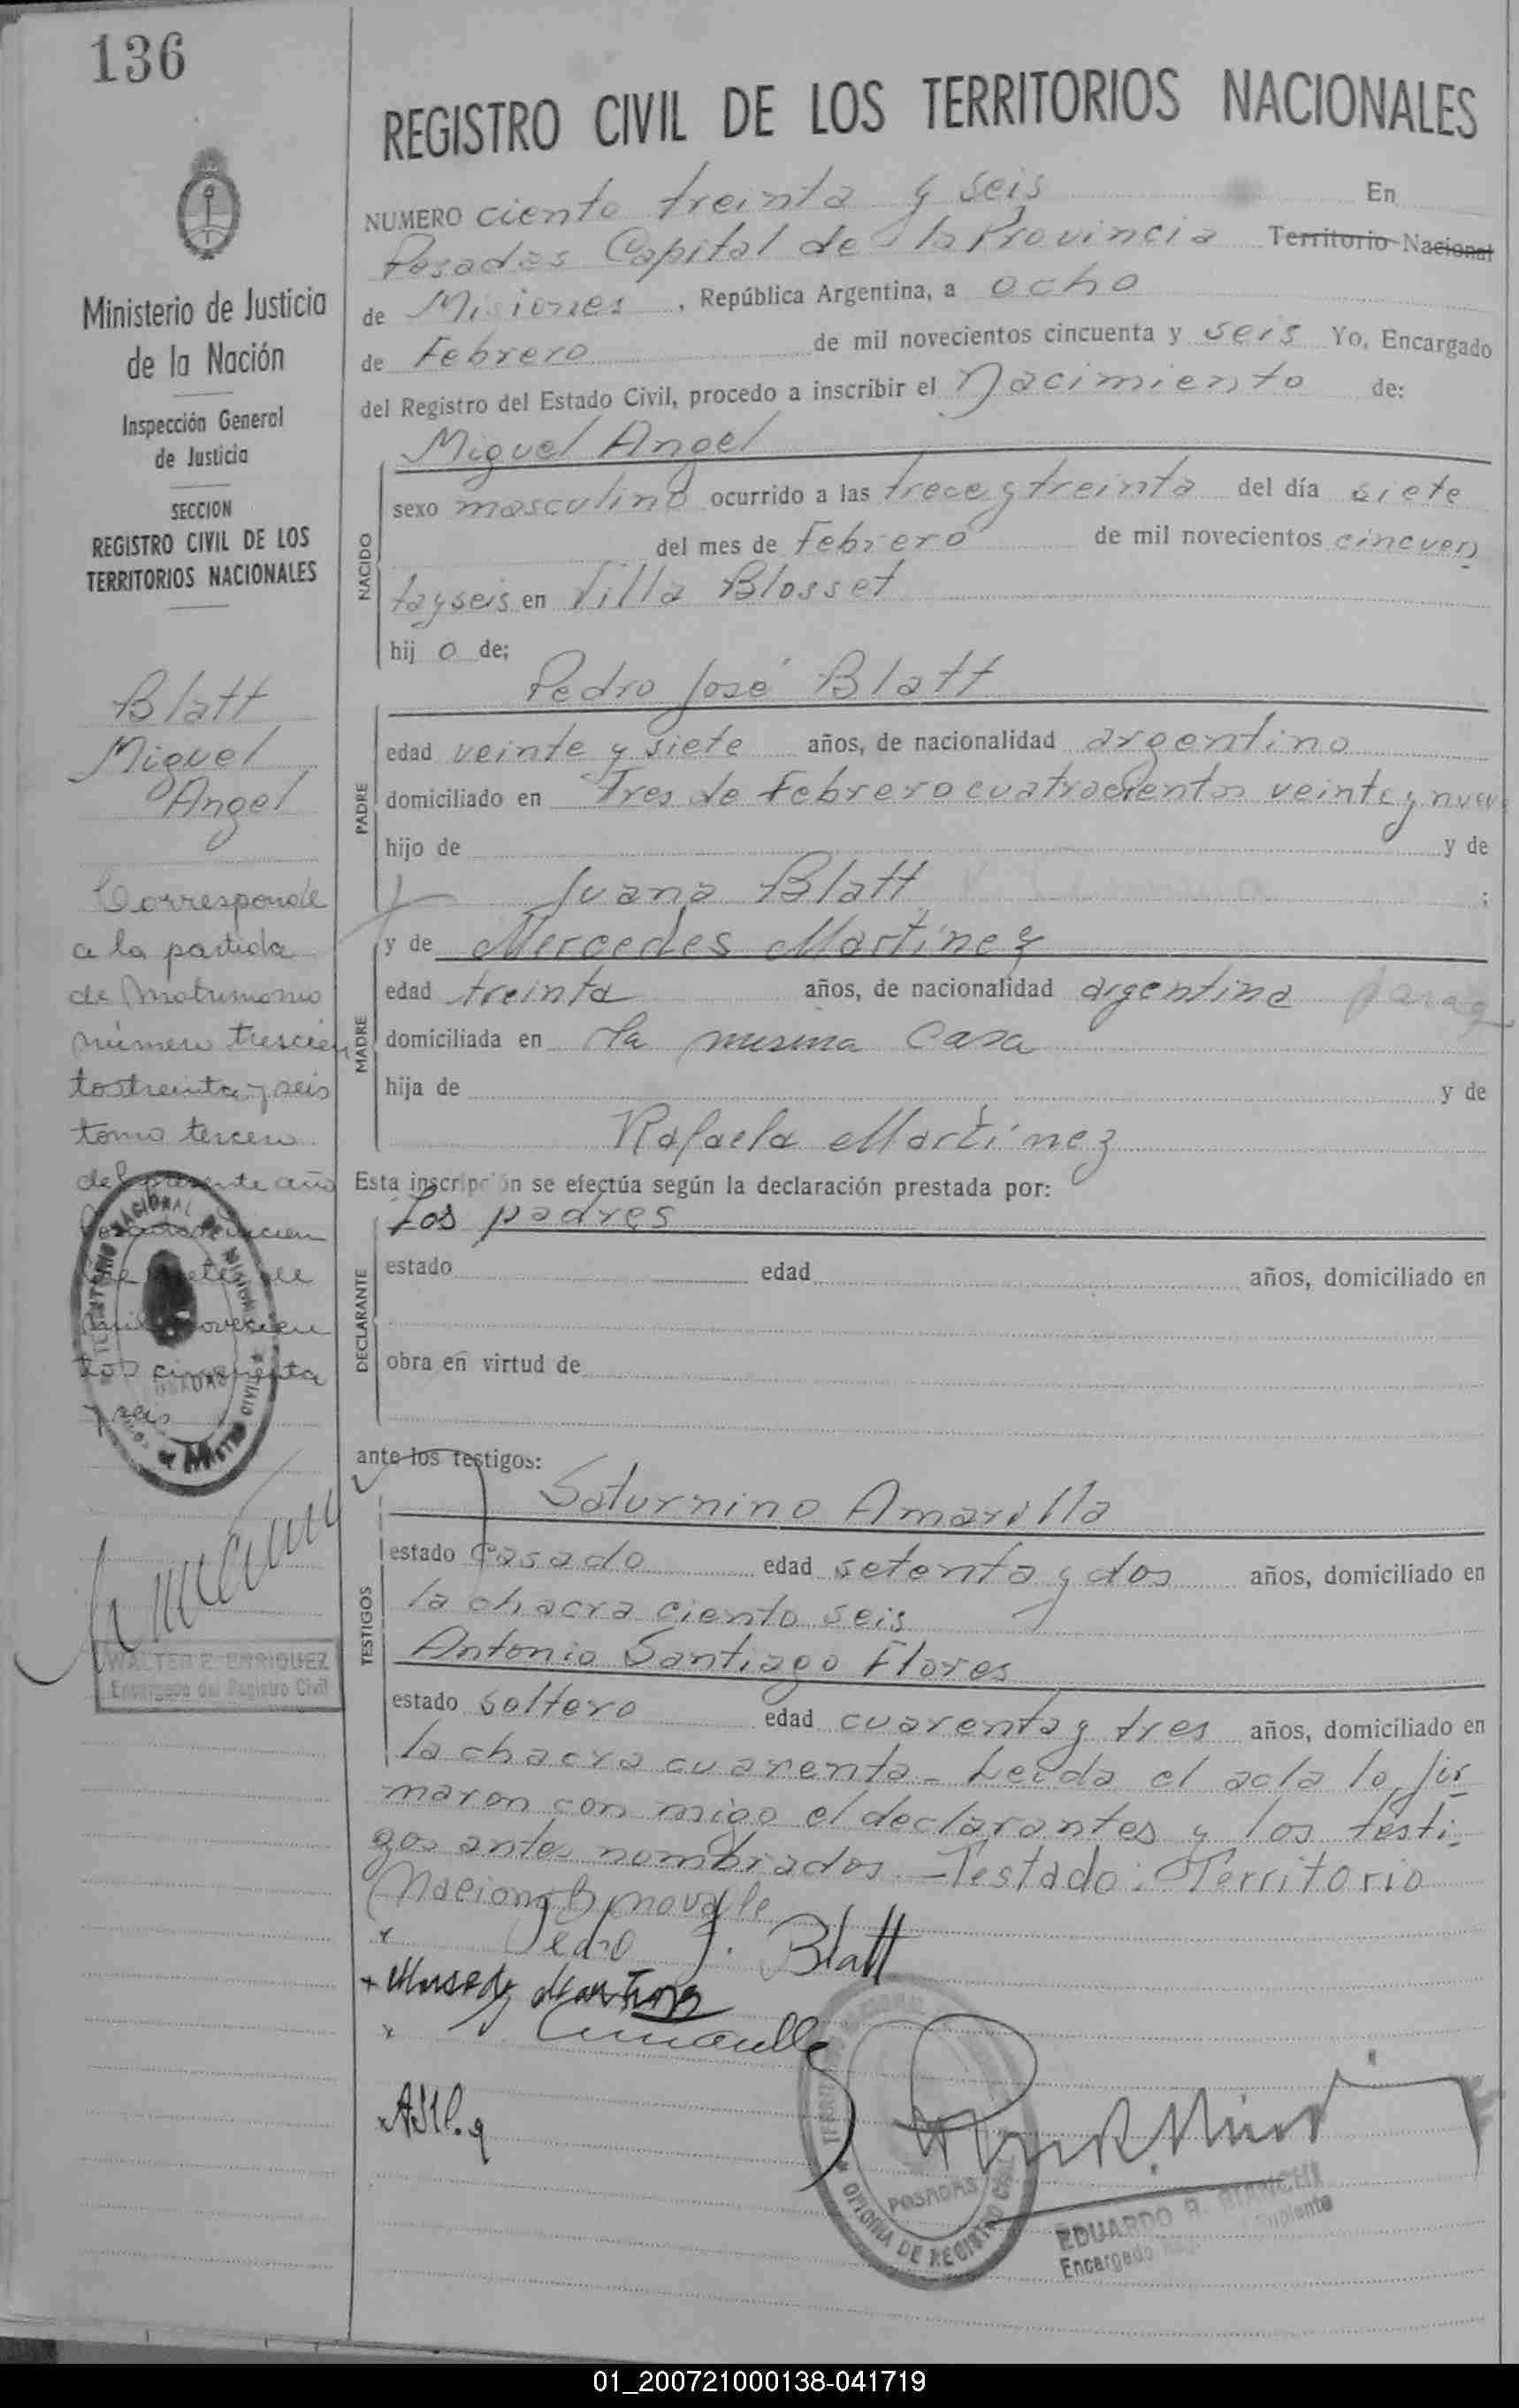 136
REGISTRO CIVIL DE LOS TERRITORIOS NACIONALES
NUMERO ciento treinta y seis En
Posadas Capital de la Provincia Territorio Nacional
de Misiones, República Argentina, a ocho
de Febrero de mil novecientos cincuenta y seis Yo, Encargado
del Registro del Estado Civil, procedo a inscribir el Nacimiento de:
Miguel Angel
NACIDO
sexo masculino ocurrido a las trece y treinta del día siete
del mes de Febrero de mil novecientos cincuen
tayseis en Villa Blosset
hij o de;
Pedro José Blatt
PADRE
edad veinte y siete años, de nacionalidad argentino
domiciliado en Tres de Febrero cuatrocientos veinte y nueve
hijo de y de
Juana Blatt ;
y de Mercedes Martinez
MADRE
edad treinta años, de nacionalidad argentina
domiciliada en la misma casa
hija de y de
Rafaela Martínez
Esta inscripción se efectúa según la declaración prestada por:
Los padres
DECLARANTE
estado edad años, domiciliado en
obra en virtud de
ante los testigos:
Saturnino Amarilla
TESTIGOS
estado casado edad setenta y dos años, domiciliado en
la chacra ciento seis
Antonio Santiago Flores
estado soltero edad cuarenta y tres años, domiciliado en
la chacra cuarenta - Leida el acta la fir
maron con migo el declarantes y los testi-
gos antes nombrados.- Testado: Territorio
Nacional no vale
x Pedro J. Blatt
+ Mercedes Martinez
x
POSADAS
OFICINA DE REGISTRO CIVIL
EDUARDO R. BIANCHI
Encargado Suplente
Ministerio de Justicia
de la Nación
Inspección General
de Justicia
SECCION
REGISTRO CIVIL DE LOS
TERRITORIOS NACIONALES
Blatt
Miguel
Angel
Corresponde
a la partida
de Matrimonio
número trescien
tostreinta y seis
tomo tercero
del presente año
mil novecien
tos cincuenta
y seis
WALTER E. ENRIQUEZ
Encargado del Registro Civil
01_200721000138-041719